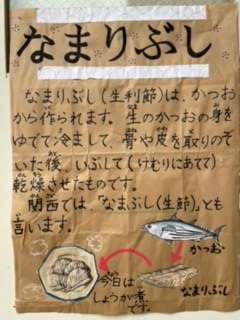 なまりぶし
なまりぶし(生利節)は、かつお
から作られます。生のかつおの身を
ゆでて冷まして、骨や皮を取りのぞ
いた後、いぶして(けむりにあてて)
乾燥させたものです。
関西では、「なまぶし(生節)」とも
言います。
かつお
今日は
しょうが煮
です。
なまりぶし